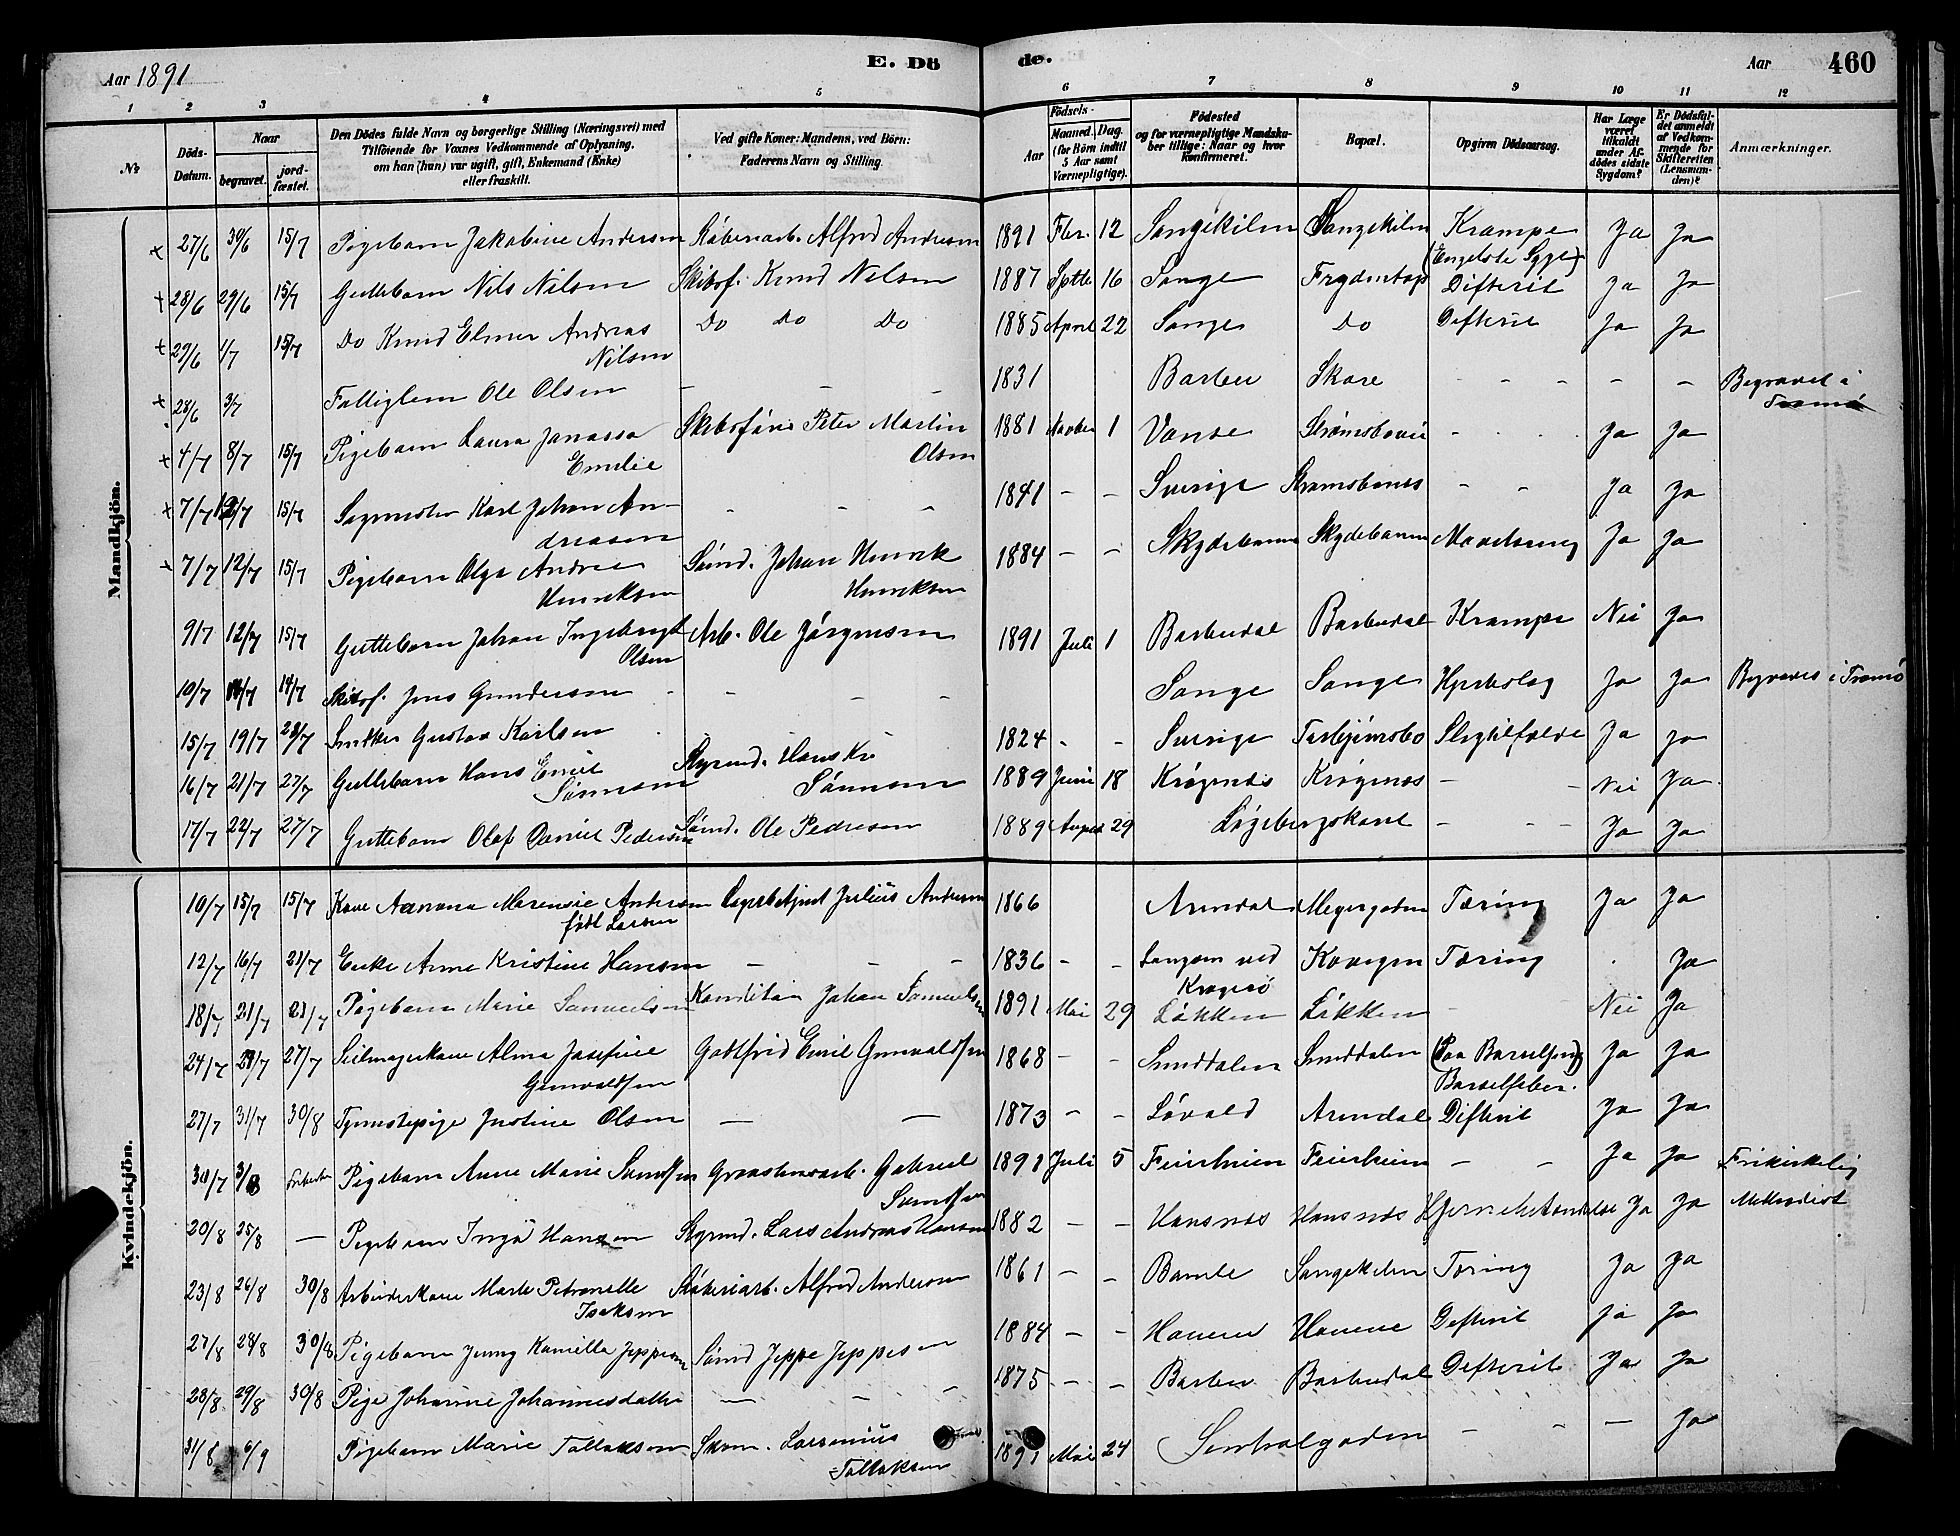 Aar 1891
E. Dö
de.
Aar
460
1 2 3 4 5 6 7 8 9 10 11 12
No
Döds-Datum.
Naar
begravet.
jord-fæstet.
Den Dödes fulde Navn og borgerlige Stilling (Næringsvei) med
Tilföiende for Voxnes Vedkommende af Oplysning,
om han (hun) var ugift, gift, Enkemand (Enke)
eller fraskilt.
Ved gifte Koner: Mandens, ved Börn:
Faderens Navn og Stilling.
Födsels-
Aar
Maaned. Dag.
(for Börn indtil
5 Aar samt
Værnepligtige).
Födested
og for værnepligtige Mandska-
ber tillige: Naar og hvor
konfirmeret.
Bopæl.
Opgiven Dödsaarsag.
Har Læge
været
tilkaldt
under Af-
dödes sidste
Sygdom?
Er Dödsfal-
det anmeldt
af Vedkom-
mende for
Skifteretten
(Lensman-
den)?
Anmærkninger.
Mandkjön.
+ 27/6 30/6 15/7 Pigebarn Jakobine Andersen Alfred Andersen 1891 Fbr. 12 Songekilen Songekilen Krampe Ja Ja
(Engelske Syge)
+ 28/6 29/6 15/7 Guttebarn Nils Nilsen Skibsf. Knud Nilsen 1887 Sptb 16 Songe Difterit Ja Ja
+ 29/6 1/7 15/7 Do Knud Elmer Andreas Do Do Do 1885 April 22 Songe Do Difterit Ja Ja
Nilsen
+ 28/6 3/7 Fattiglem Ole Olsen - - - 1831 Barbu Skare - - - - - Begravet i
Tromö
+ 4/7 8/7 15/7 Pigebarn Laura Skibsfører Peter Martin 1881 Novber 1 Vanse - - Ja Ja
Emilie Olsen
+ 7/7 12/7 15/7 Karl Johan An- - - - 1841 - - Sverige - - Ja Ja
dreasen
+ 7/7 12/7 15/7 Pigebarn Olga Andrea Sømd. Johan Henrik 1884 - - Skydebanen Skydebanen Ja Ja
Henriksen Henriksen
9/7 12/7 15/7 Guttebarn Johan Ingebregt Arb. Ole Jörgensen 1891 Juli 1 Barbudal Barbudal Krampe Nei Ja
Olsen
10/7 14/7 14/7 Skibsf. Jens Gundersen - - - Songe Songe Ja Ja Begraves i Tromö
15/7 19/7 28/7 Snekker Gustav Karlsen 1824 - - Sverige Slagtilfælde Ja Ja
16/7 21/7 27/7 Guttebarn Hans Emil Styrmd. Hans Kr. 1889 Juni 18 Krøgenæs Krøgenæs - - Nei Ja
17/7 22/7 27/7 Guttebarn Olaf Daniel Pedersen Sømd. Ole Pedersen 1889 August 29 - - Ja Ja
Kvindekjön.
10/7 15/7 15/7 Kone Andersen Julius Andersen 1866 Arendal Tæring Ja Ja
født Larsen
12/7 16/7 21/7 Enke Anne Kristine Hansen - - - 1836 - - Langøen ved Tæring Ja
Kragerö
18/7 21/7 21/7 Pigebarn Marie Samuelsen Konditor Johan Samuelsen 1891 Mai 29 Løkken Løkken - Nei Ja
24/7 29/7 27/7 Seilmagerkone Alma Josefine Godtfred Emil Gunvaldsen 1868 - - Smeddalen Smeddalen Ja Ja
Gunvaldsen Barselfeber.
27/7 31/7 30/8 Tjenestepige Justine Olsen - - 1873 - - Løvold Arendal Difterit Ja Ja
30/7 3/8 Pigebarn Anne Marie Gabriel 1891 Juli 5 Feierheien Feierheien - - Ja Ja Frikirkelig
20/8 25/8 - Pigebarn Inga Hansen Styrmd. Lars Andreas Hansen 1882 - - Ja Ja Methodist
23/8 26/8 30/8 Arbeiderkone Petronelle Alfred Andersen 1861 - - Bamle Songekilen Tæring Ja Ja
Isaksen
27/8 28/8 30/8 Pigebarn Jenny Kamilla Jeppesen Sømd Jeppe Jeppesen 1884 - - Difterit Ja Ja
28/8 29/8 30/8 Pige Johanne Johannesdatter - - - 1875 - - Barbu Barbudal Difterit Ja Ja
31/8 6/9 Pigebarn Marie Tallaksen Skom. 1891 Mai 24 Sentralgaden - - - Ja
Tallaksen